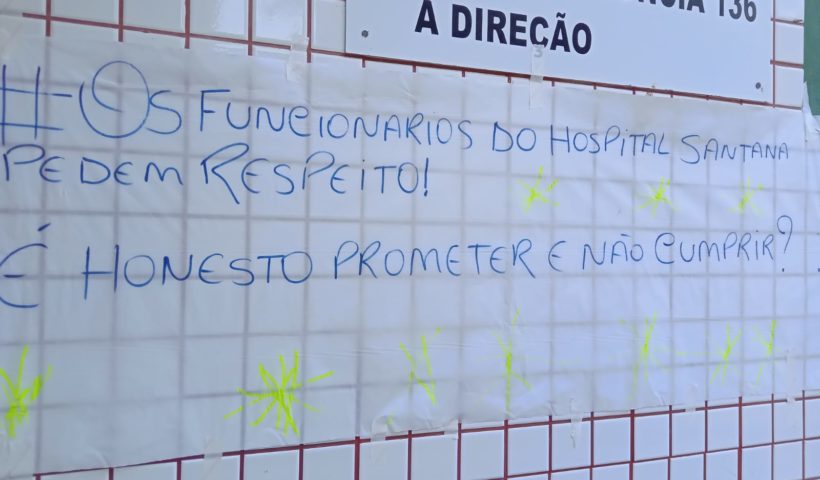 136
A DIREÇÃO
#-Os FUNCIONARIOS DO HOSPITAL SANTANA
PEDEM RESPEITO!
É HONESTO PROMETER E NÃO CUMPRIR?